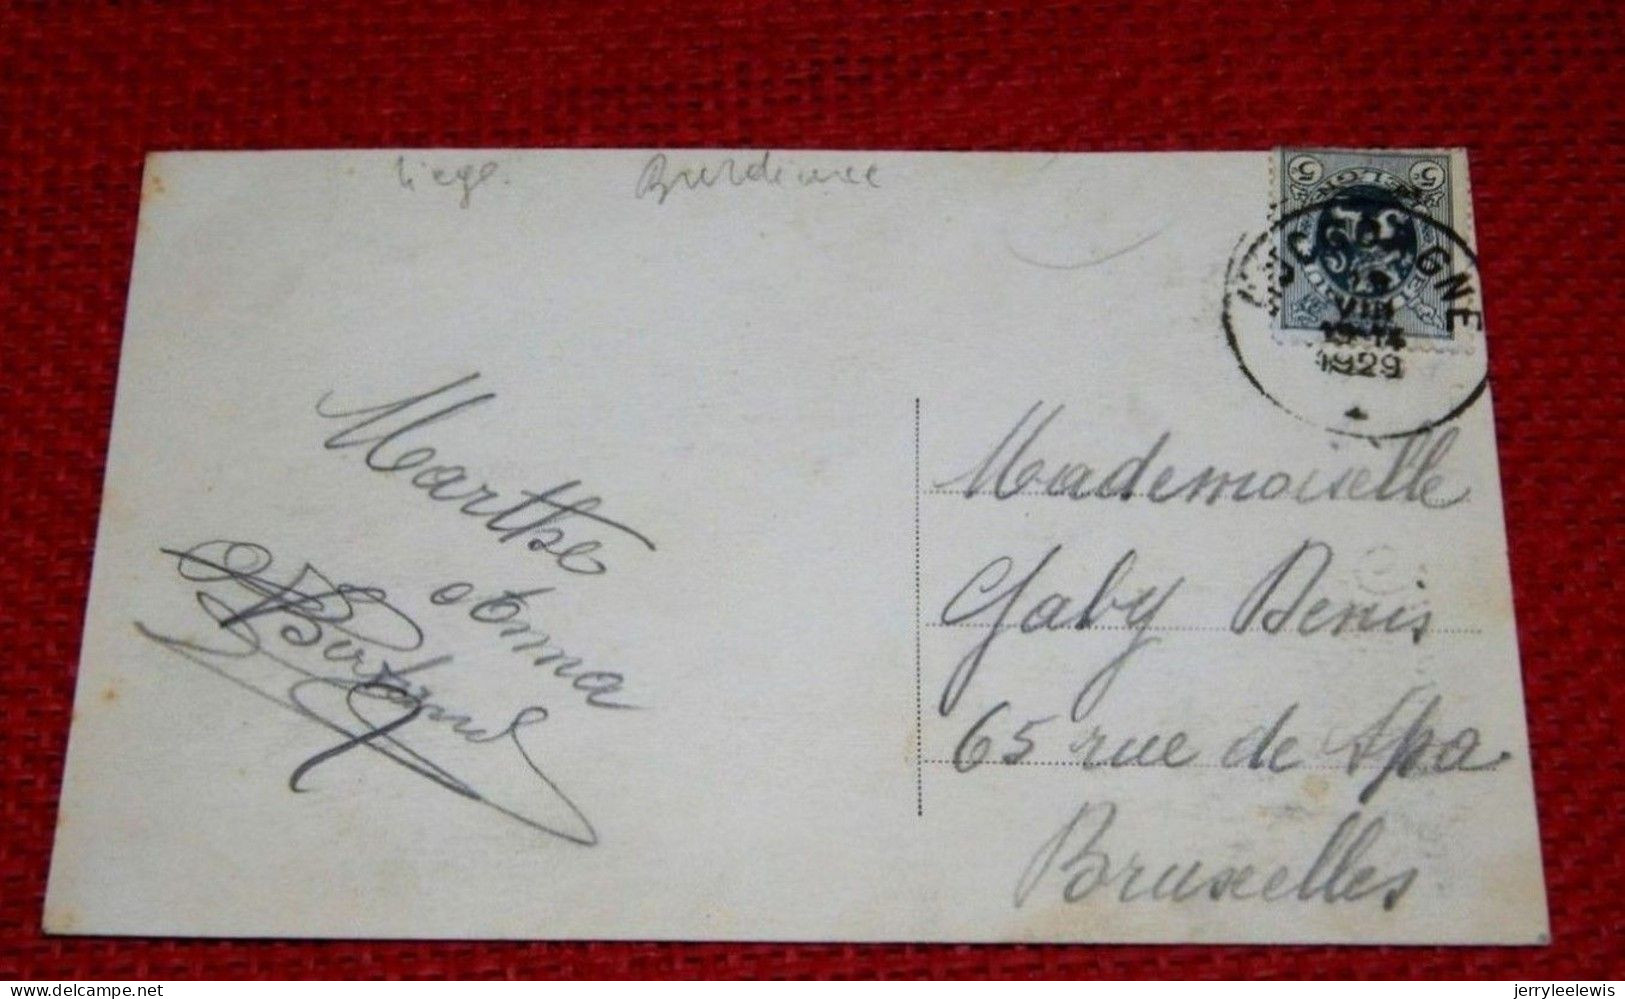 Liege. Burdinne
5 5
HUCCORGNE
VIII
1929
Marthe
et Irma
Bertrand
Mademoiselle
Gaby Denis
65 rue de Spa
Bruxelles.
delcampe.net
jerryleelewis